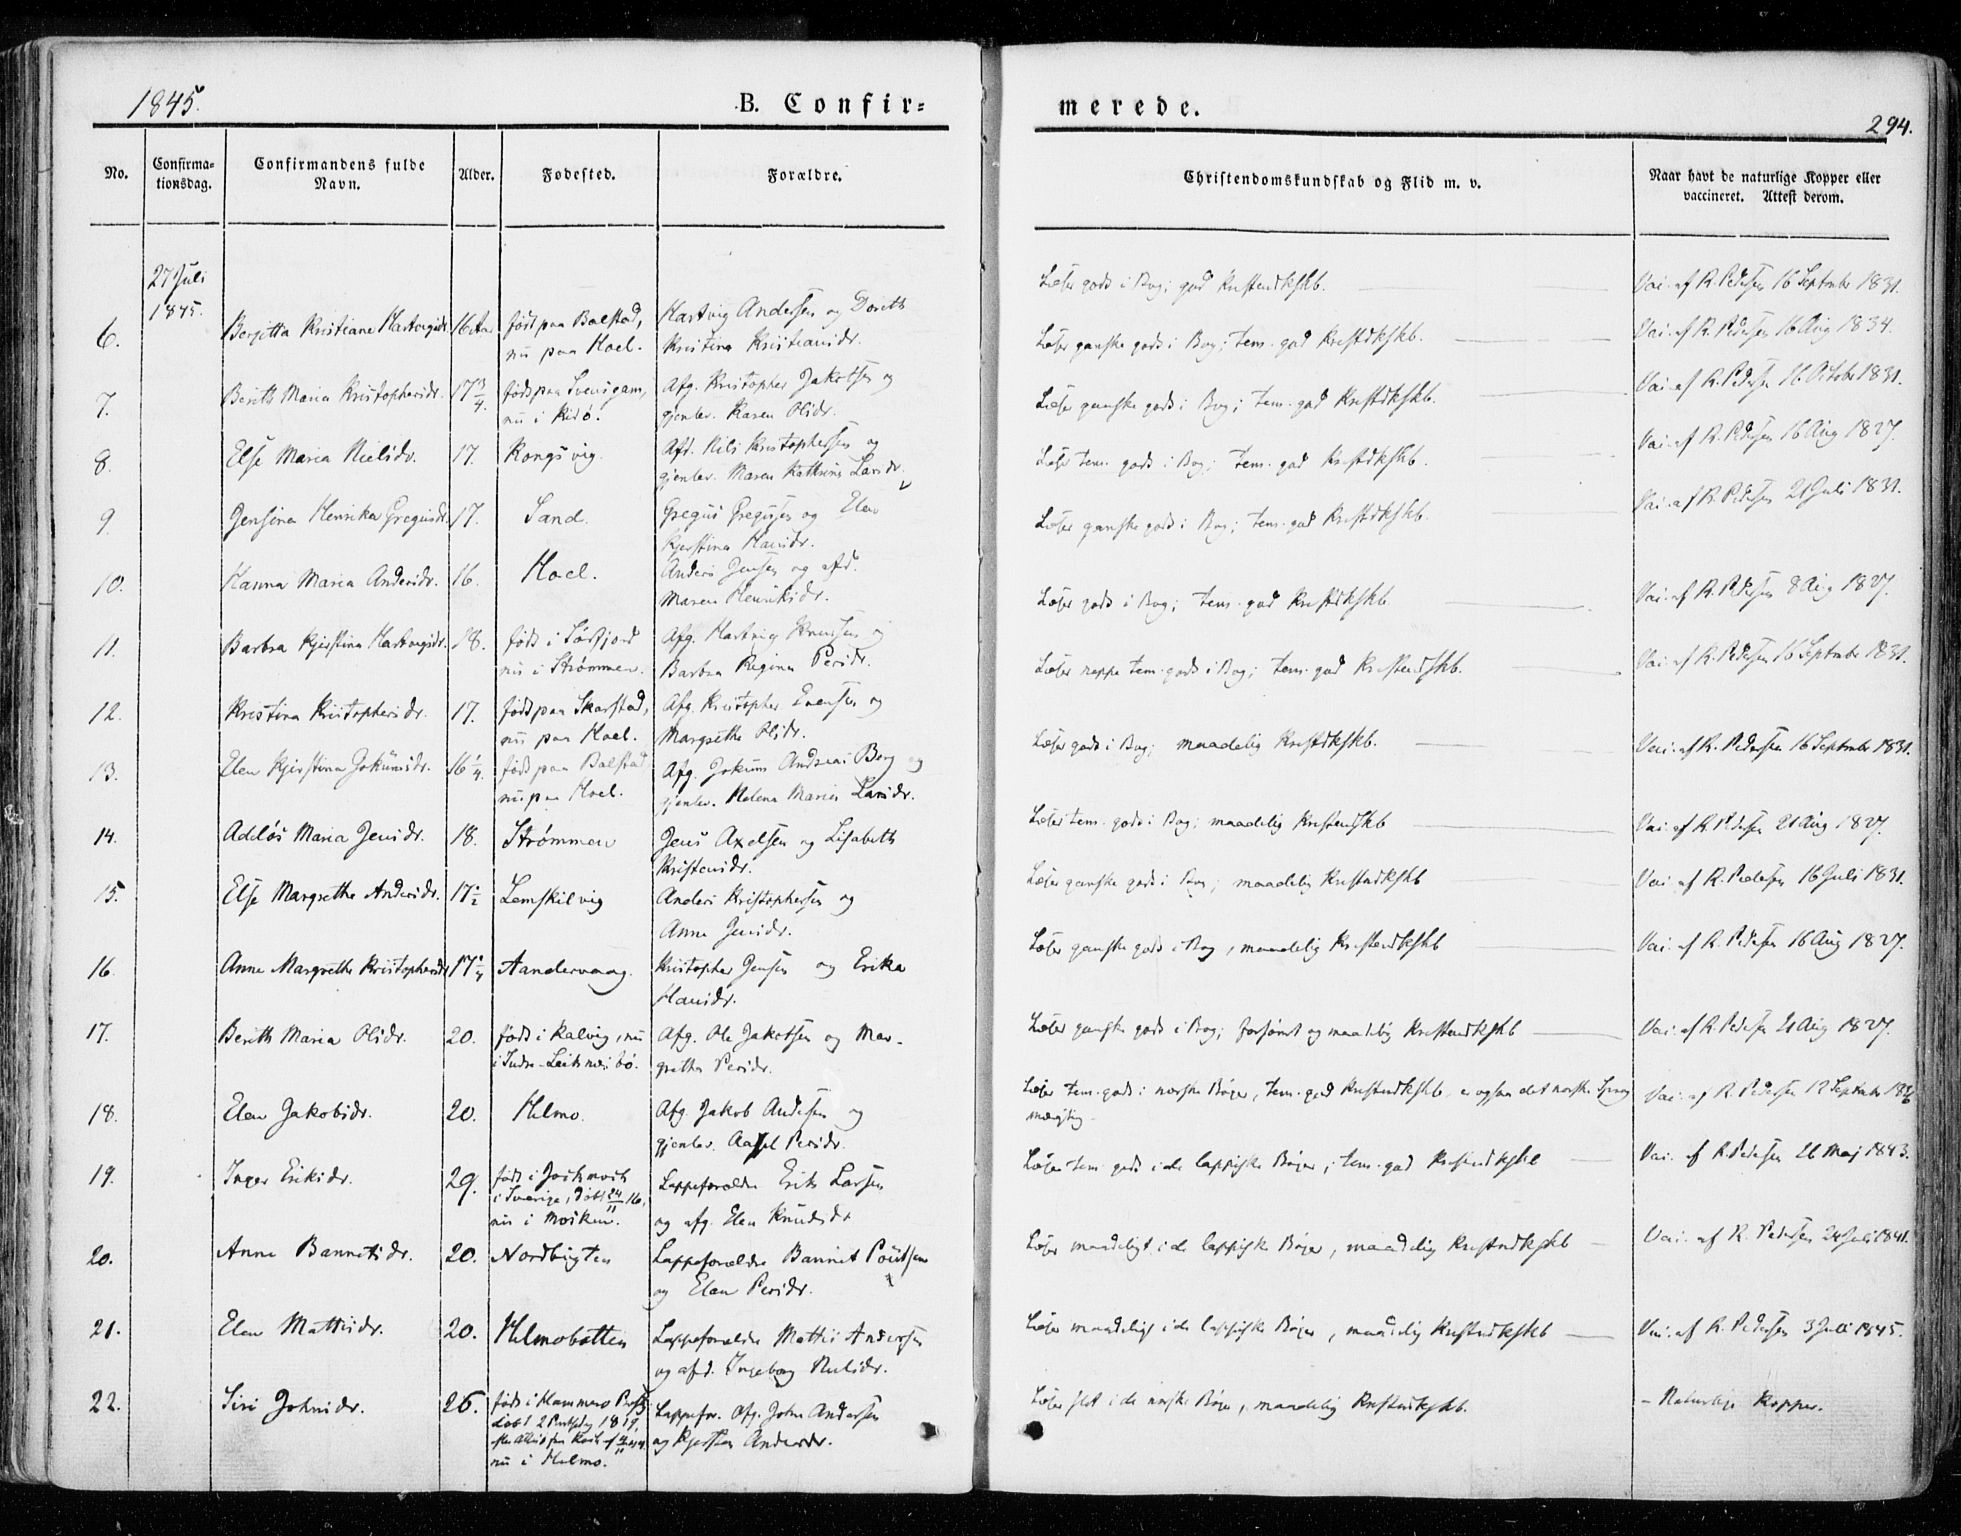 1845.
B. Confir=
merede.
294.
No.
Confirma=
tionsdag.
Confirmandens fulde
Navn.
Alder.
Fødested.
Forældre.
Christendomskundskab og Flid m. v.
Naar havt de naturlige Kopper eller
vaccineret. Attest derom.
27 Juli
1845.
6. Berjitta Kristiane Hartvigsdr. 16 Aar født paa Balstad, Hartvig Andersen og Doreth
nu paa Hoel. Kristina Kristiansdr.
Læser godt i Bog; god Kristendkskb. Vac. af R. Pedersen 16 September 1831.
7. Berith Maria Kristophersdr. 17 3/4. født paa afg. Kristopher Jakobsen og
nu i gjenlev. Karen Olsdr.
Læser ganske godt i Bog; tem. god Kristdkskb. Vac. af R. Pedersen 16 Aug 1834.
8. Else Maria Nielsdr. 17. Kongsvig. Afd. Nils Kristophersen og
gjenlev. Maren Kathrina Larsdr.
Læser ganske godt i Bog; tem. god Kristdkskb. Vac. af R. Pedersen 16 October 1831.
9. Jensina Henrika Gregusdr. 17. Sand. Gregus Gregusen og Elen
Kjerstina Hansdr.
Læser tem. godt i Bog; tem. god Kristdkskb. Vac. af R. Pedersen 16 Aug 1827.
10. Hanna Maria Andersdr. 16. Hoel. Anders Jensen og afd.
Maren Henriksdr.
Læser ganske godt i Bog; tem. god Kristdkskb. Vac. af R. Pedersen 21 Juli 1831.
11. Barbra Kjerstina Hartvigsdr. 18. født i Sørfjord Afg. Hartvig og
nu i Strømmen. Barbra Regina Persdr.
Læser godt i Bog; tem. god Kristdkskb. Vac. af R. Pedersen 8 Aug 1827.
12. Kristina Kristophersdr. 17. født paa Skarstad, Afg. Kristopher Evensen og
nu paa Hoel. Margrethe Olsdr.
Læser neppe tem. godt i Bog; tem. god Kristendskb. Vac. af R. Pedersen 16 September 1831.
13. Elen Kjerstina Jokumsdr. 16 1/4. født paa Balstad Afg. Jokum Andreas Berg og
nu paa Hoel. gjenlev. Helena Maria Larsdr.
Læser godt i Bog; maadelig Kristdkskb. Vac. af R. Pedersen 16 September 1831.
14. Adeløs Maria Jensdr. 18. Strømmen Jens Axelsen og Lisabeth
Kristensdr.
Læser tem. godt i Bog; maadelig Kristendskb Vac. af R. Pedersen 21 Aug 1827.
15. Else Margrethe Andersdr. 17 1/2 Lemskilvig Anders Kristophersen og
Anne Jensdr.
Læser ganske godt i Bog; maadelig Kristendkskb Vac. af R. Pedersen 16 Juli 1831.
16. Anne Margrethe Kristophersdr 17 1/4 Aandervaag. Kristopher Jensen og Erika
Hansdr.
Læser ganske godt i Bog, maadelig Kristendkskb Vac. af R. Pedersen 16 Aug 1827.
17. Berith Maria Olsdr. 20. født i Kalvig, nu Afg. Ole Jakobsen og Mar-
i Indre- grethe Persdr.
Læser ganske godt i Bog; forsømt og maadelig Kristendkskb Vac. af R. Pedersen 21 Aug 1827.
18. Elen Jakobsdr. 20. Helmo. Afg. Jakob Andersen og
gjenlev. Persdr.
Læser tem. godt i norske Bøger, tem. god Kristendkskb, er ogsaa det norske Sprog
mægtig. Vac. af R. Pedersen 12 September
19. Inger Eriksdr. 29. født i Jockmock Lappeforældre Erik Larsen
i Sverige, døbt 24/11 16, og afg. Elen Knudsdr
nu i Mosken.
Læser tem. godt i de lappiske Bøger; tem. god Kristendkskb Vac. af R. Pedersen 26 Maj 1843.
20. Anne Bannetsdr. 20. Nordbugten Lappeforældre Bannet
og Elen Persdr.
Læser maadeligt i de lappiske Bøger, maadelig Kristendkskb Vac. af R. Pedersen 24 Juli 1841.
21. Elen Mathisdr. 20. Helmobotten Lappeforældre Mathis Andersen
og afd. Ingeborg Nielsdr.
Læser maadeligt i de lappiske Bøger, maadelig Kristendkskb Vac. af R. Pedersen 3 Juli 1845.
22. Siri Johnsdr. 26. født i Hammerø Lappefor. Afg. John Andersen
døbt 2 1819, og Kjersten Andersdr.
nu i Helmo.
Læser slet i de norske Bøger, maadelig Kristendkskb. - Naturlige Kopper.